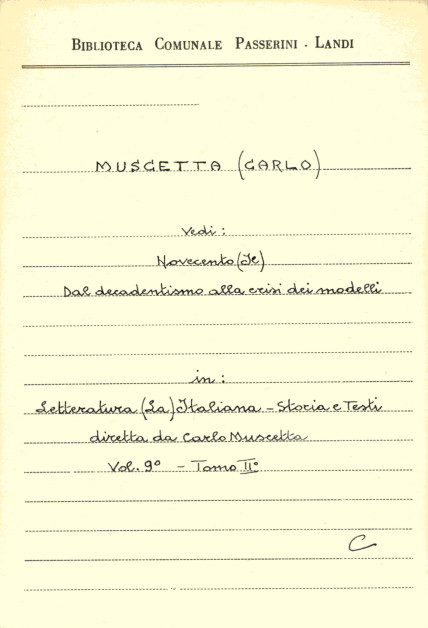 BIBLIOTECA COMUNALE PASSERINI - LANDI
MUSCETTA (CARLO)
Vedi :
Novecento (Il)
Dal decadentismo alla crisi dei modelli
in :
Letteratura (La) Italiana - Storia e Testi
diretta da Carlo Muscetta
Vol. 9° - Tomo II°
C